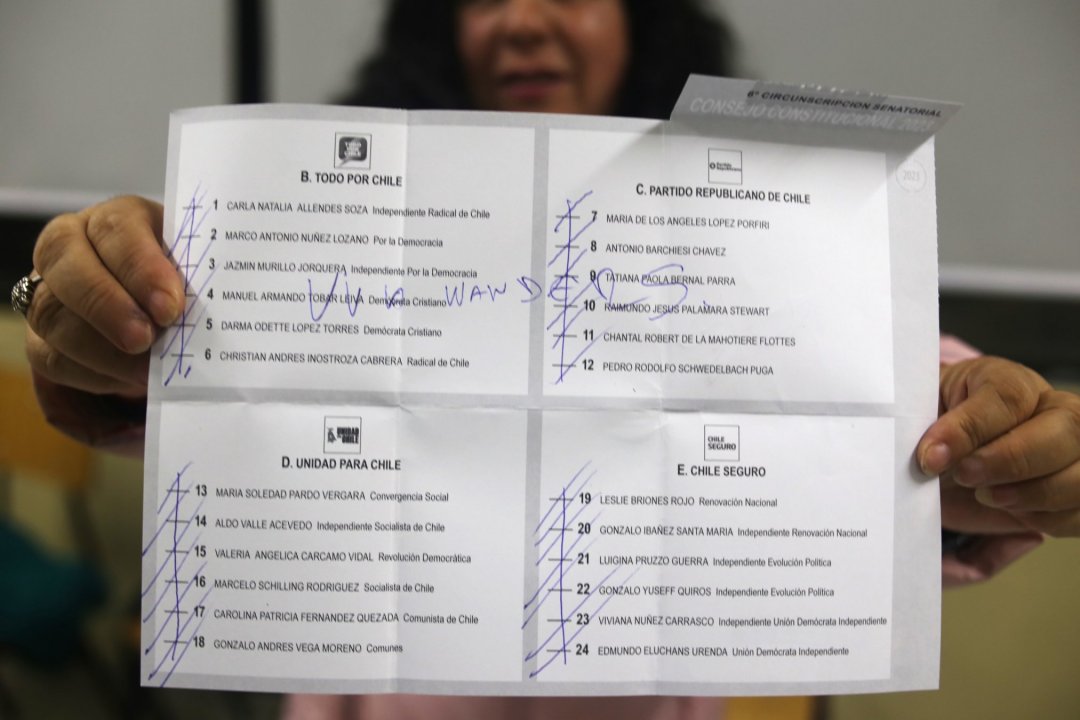 6ª CIRCUNSCRIPCION SENATORIAL
CONSEJO CONSTITUCIONAL 2023
2023
TODO POR CHILE
B. TODO POR CHILE
1 CARLA NATALIA ALLENDES SOZA Independiente Radical de Chile
2 MARCO ANTONIO NUÑEZ LOZANO Por la Democracia
3 JAZMIN MURILLO JORQUERA Independiente Por la Democracia
4 MANUEL ARMANDO TOBAR LEIVA Demócrata Cristiano
5 DARMA ODETTE LOPEZ TORRES Demócrata Cristiano
6 CHRISTIAN ANDRES INOSTROZA CABRERA Radical de Chile
Partido Republicano
C. PARTIDO REPUBLICANO DE CHILE
7 MARIA DE LOS ANGELES LOPEZ PORFIRI
8 ANTONIO BARCHIESI CHAVEZ
9 TATIANA PAOLA BERNAL PARRA
10 RAIMUNDO JESUS PALAMARA STEWART
11 CHANTAL ROBERT DE LA MAHOTIERE FLOTTES
12 PEDRO RODOLFO SCHWEDELBACH PUGA
WANDERS
UNIDAD CHILE
D. UNIDAD PARA CHILE
13 MARIA SOLEDAD PARDO VERGARA Convergencia Social
14 ALDO VALLE ACEVEDO Independiente Socialista de Chile
15 VALERIA ANGELICA CARCAMO VIDAL Revolución Democrática
16 MARCELO SCHILLING RODRIGUEZ Socialista de Chile
17 CAROLINA PATRICIA FERNANDEZ QUEZADA Comunista de Chile
18 GONZALO ANDRES VEGA MORENO Comunes
CHILE SEGURO
E. CHILE SEGURO
19 LESLIE BRIONES ROJO Renovación Nacional
20 GONZALO IBAÑEZ SANTA MARIA Independiente Renovación Nacional
21 LUIGINA PRUZZO GUERRA Independiente Evolución Política
22 GONZALO YUSEFF QUIROS Independiente Evolución Política
23 VIVIANA NUÑEZ CARRASCO Independiente Unión Demócrata Independiente
24 EDMUNDO ELUCHANS URENDA Unión Demócrata Independiente